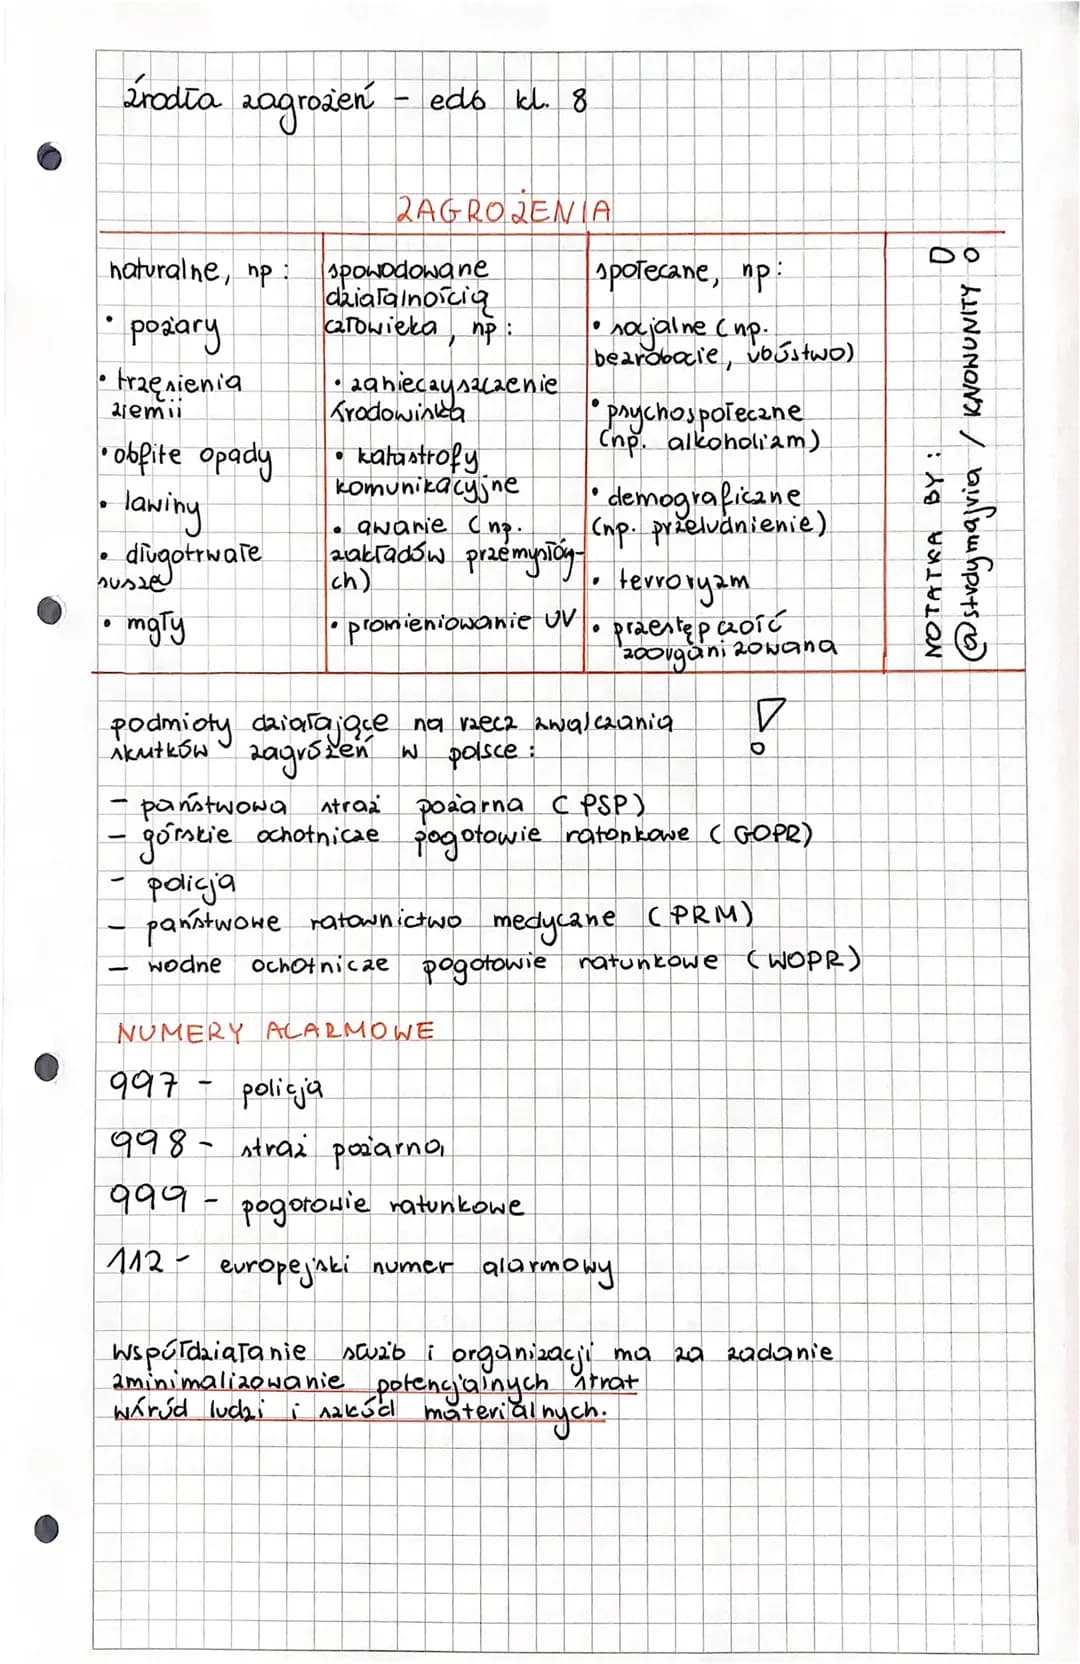 źródła zagrożeń - edb kl. 8
ZAGROŻENIA
naturalne, np:
• pożary
• trzęsienia
ziemii
• obfite opady
• lawiny
• długotrwałe
susze
• mgły
spowodowane
działalnością
człowieka, np:
• zanieczyszczenie
środowiska
• katastrofy
komunikacyjne
• awarie (np.
zakładów przemysłowy-
ch)
• promieniowanie UV
społeczne, np:
• socjalne (np.
bezrobocie, ubóstwo)
• psychospołeczne
(np. alkoholizm)
• demograficzne
(np. przeludnienie)
• terroryzm
• przestępczość
zoorganizowana
NOTATKA BY:
@studymajvia / KNONUNITY
podmioty działające na rzecz zwalczania
skutków zagrożeń w polsce:
!
- państwowa straż pożarna (PSP)
- górskie ochotnicze pogotowie ratonkowe (GOPR)
- policja
- państwowe ratownictwo medyczne (PRM)
- wodne ochotnicze pogotowie ratunkowe (WOPR)
NUMERY ALARMOWE
997 - policja
998 - straż pożarna
999 - pogotowie ratunkowe
112 - europejski numer alarmowy
współdziałanie służb i organizacji ma za zadanie
zminimalizowanie potencjalnych strat
wśród ludzi i szkód materialnych.